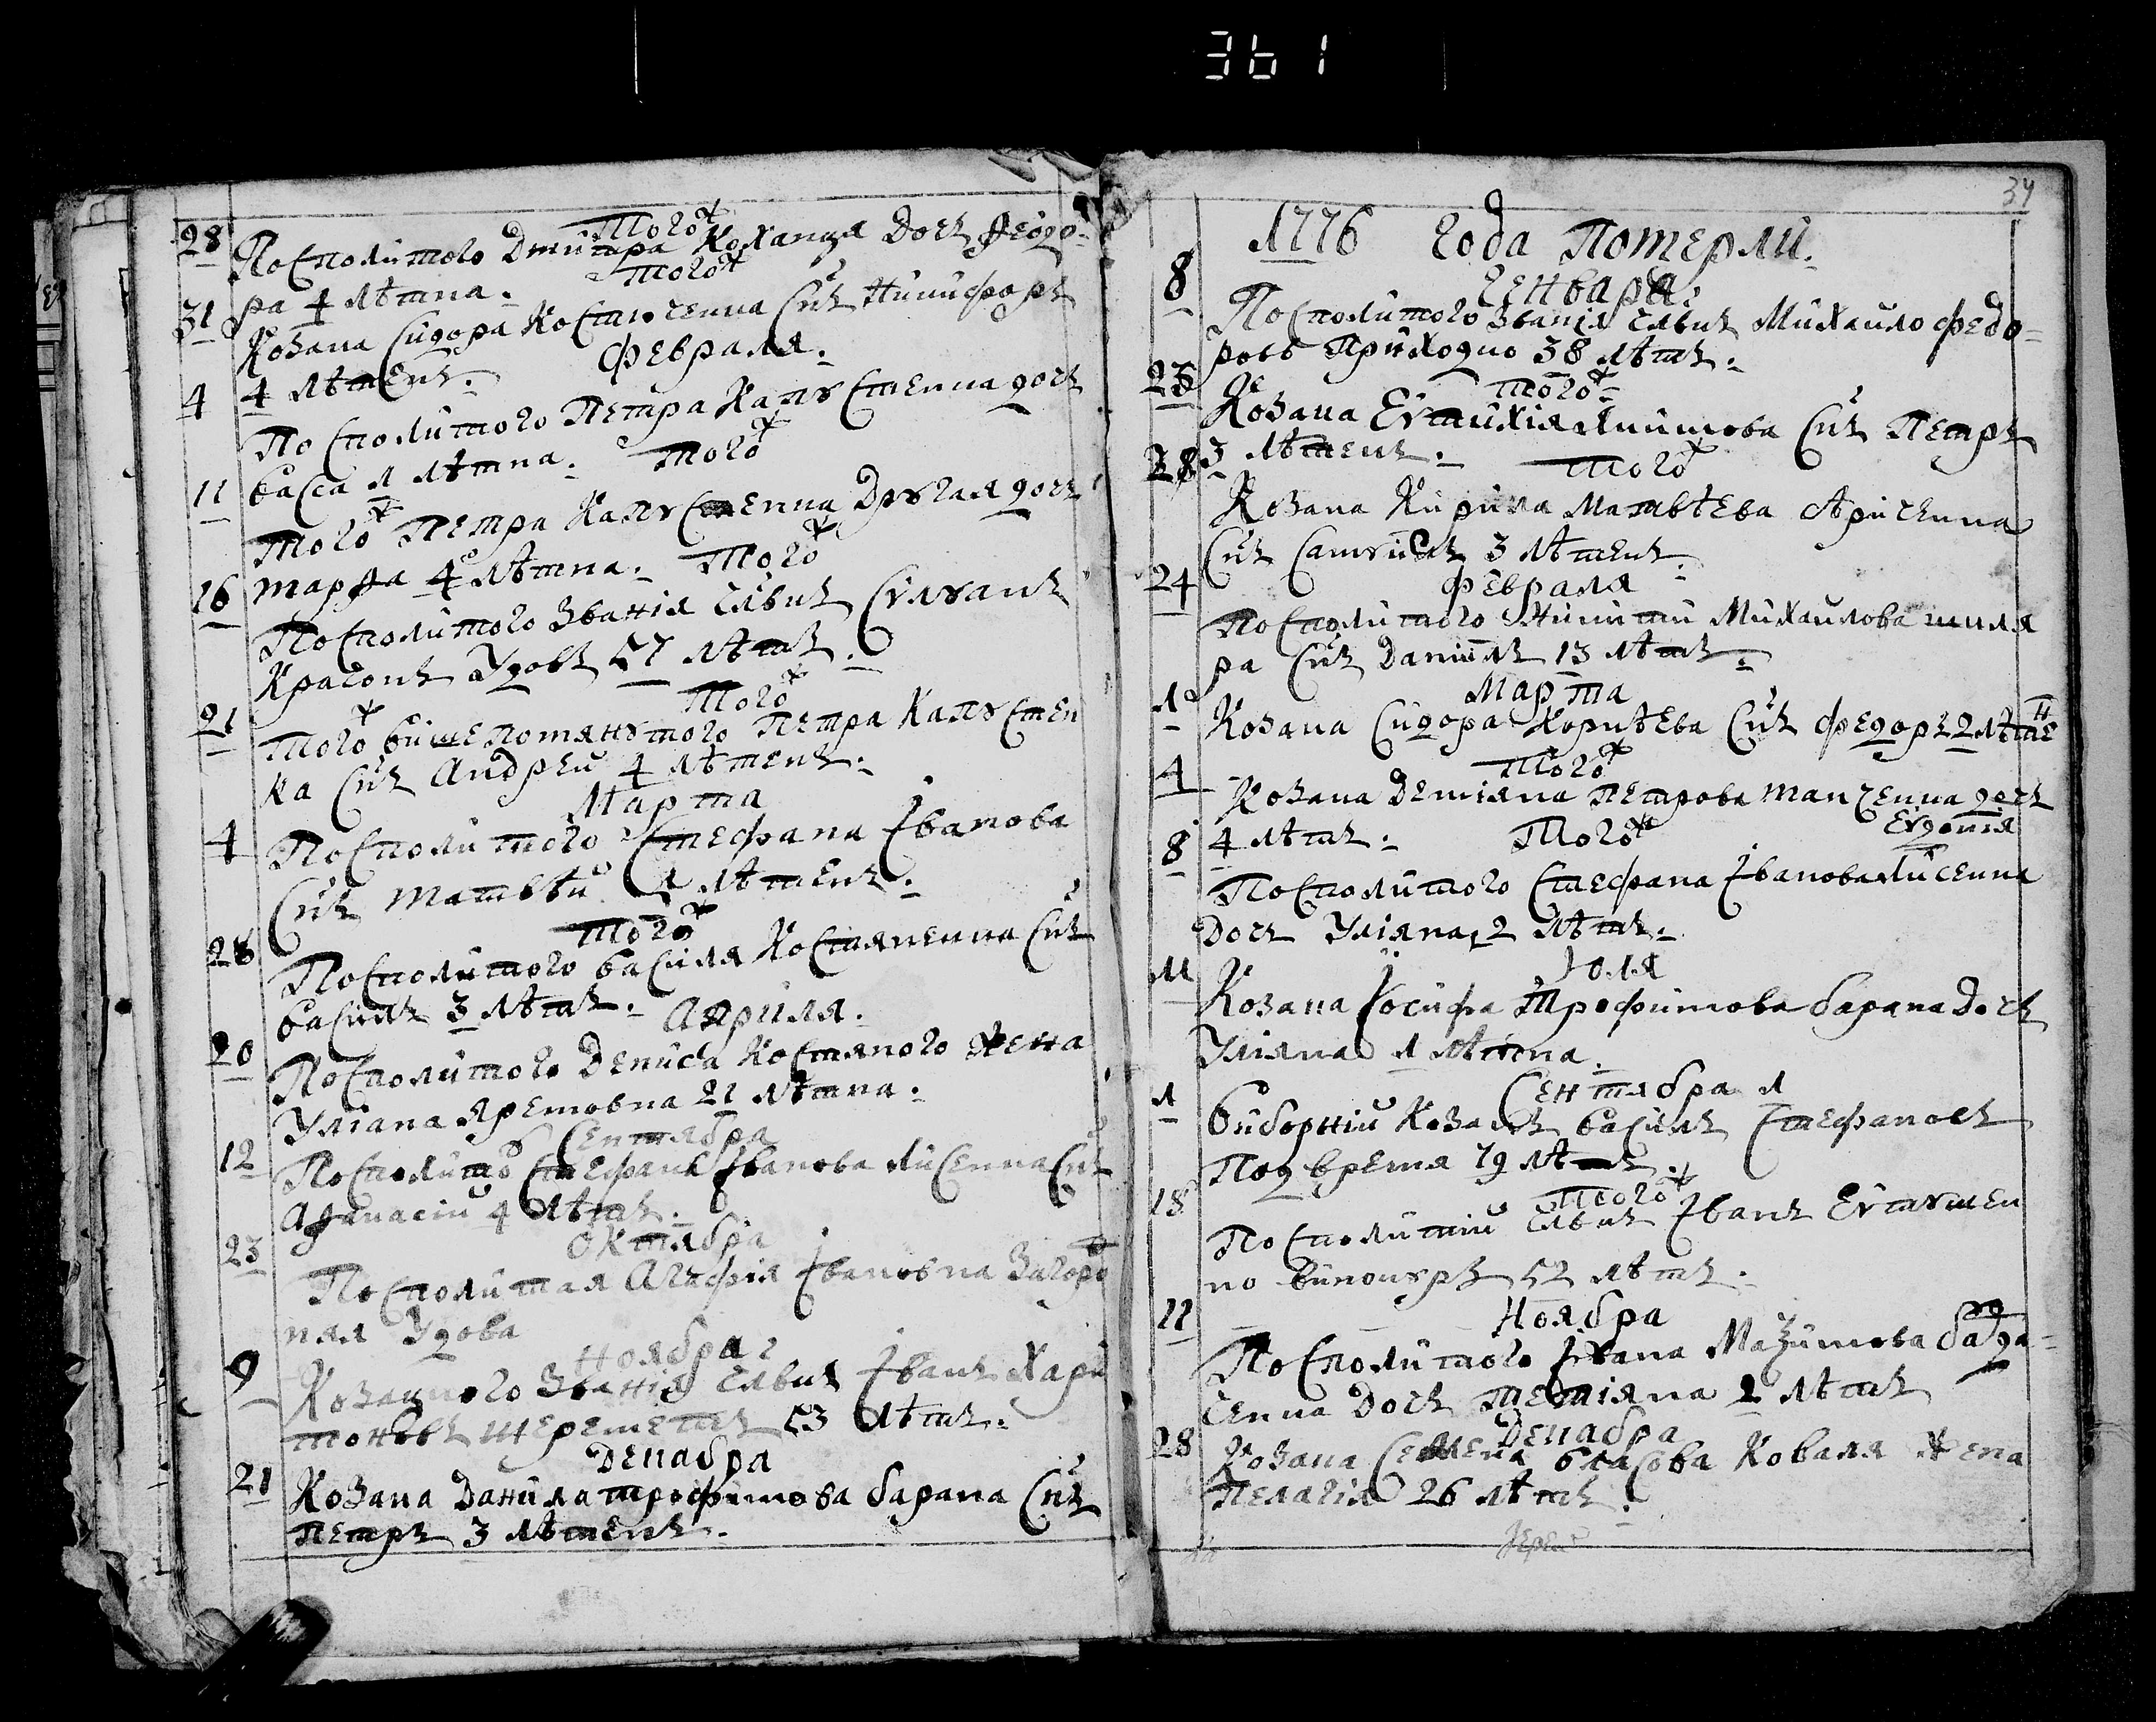 361
28
Того ж
Посполитого Дмитра Коханця дочъ Феодо-
ра 4 лѣтна.
Того ж
31
Козака Сидора Костюченка снъ Никифоръ
4 лѣтенъ.
Февраля.
4
Посполитого Петра Капустенка дочъ
васса 1 лѣтна.
Того ж
11
Того ж Петра Капустенка Другая дочъ
марфа 4 лѣтна.
Того ж
16
Посполитого званія члвкъ
Удовъ 57 лѣтъ.
Того ж
21
Того ж вишепомянутого Петра Капустен
ка снъ Андрей 4 лѣтенъ.
Марта
4
Посполитого Стефана Іванова
снъ матвѣй 1 лѣтенъ.
Того ж
28
Посполитого василя Костяненка снъ
василь 3 лѣтъ.
Априля.
20
Посполитого Дениса Костяного жена
Уліана Яремовна 21 лѣтна.
Сентября
12
Посполито Стефана Іванова лисенка снъ
Афанасій 4 лѣтъ.
октября
23
Посполитая Агафія Івановна Загоро
ная Удова
Ноября
9
Козацкого званія члвкъ Іванъ Хари
тоновъ шереметъ 53 лѣтъ.
Декабра
21
Козака Данила трофимова барана снъ
петръ 3 лѣтенъ.
34
1776 Года Померли.
Генваря
8
Посполитого званія члвкъ Михайло Федо-
ровъ Приходко 38 лѣтъ.
Того ж
23
Козака Евтихія снъ Петръ
3 лѣтенъ.
Того ж
28
Козака Кирила Матвѣева
снъ Самуилъ 3 лѣтенъ.
Февраля
24
Посполитого Никити Михаилова шкля
ра снъ Даниилъ 13 лѣтъ.
Марта
1
Козака Сидора Корнѣева снъ Федоръ 2 лѣте н
Того ж
4
Козака Деміяна Петрова манченка дочъ
Евдокія
4 лѣтъ.
Того ж
8
Посполитого Стефана Іванова Лисенка
Дочъ Уліяна 2 лѣтъ.
Юля
11
Козака Іосифа Трофимова барана Дочъ
Уліяна 1 лѣтна.
Сентябра 1
1
Виборній Козакъ василь Стефановъ
Подвремя 79 лѣтъ.
Того ж
18
Посполитій члвкъ Іванъ Евтушен
ко винокуръ 52 лѣтъ.
Ноябра
11
Посполитого Івана Мазимова
ченка Дочъ Татіяна 2 лѣтъ
Декабра
28
Козака Семена власова Коваля жена
Пелагія 26 лѣтъ.
Іерей